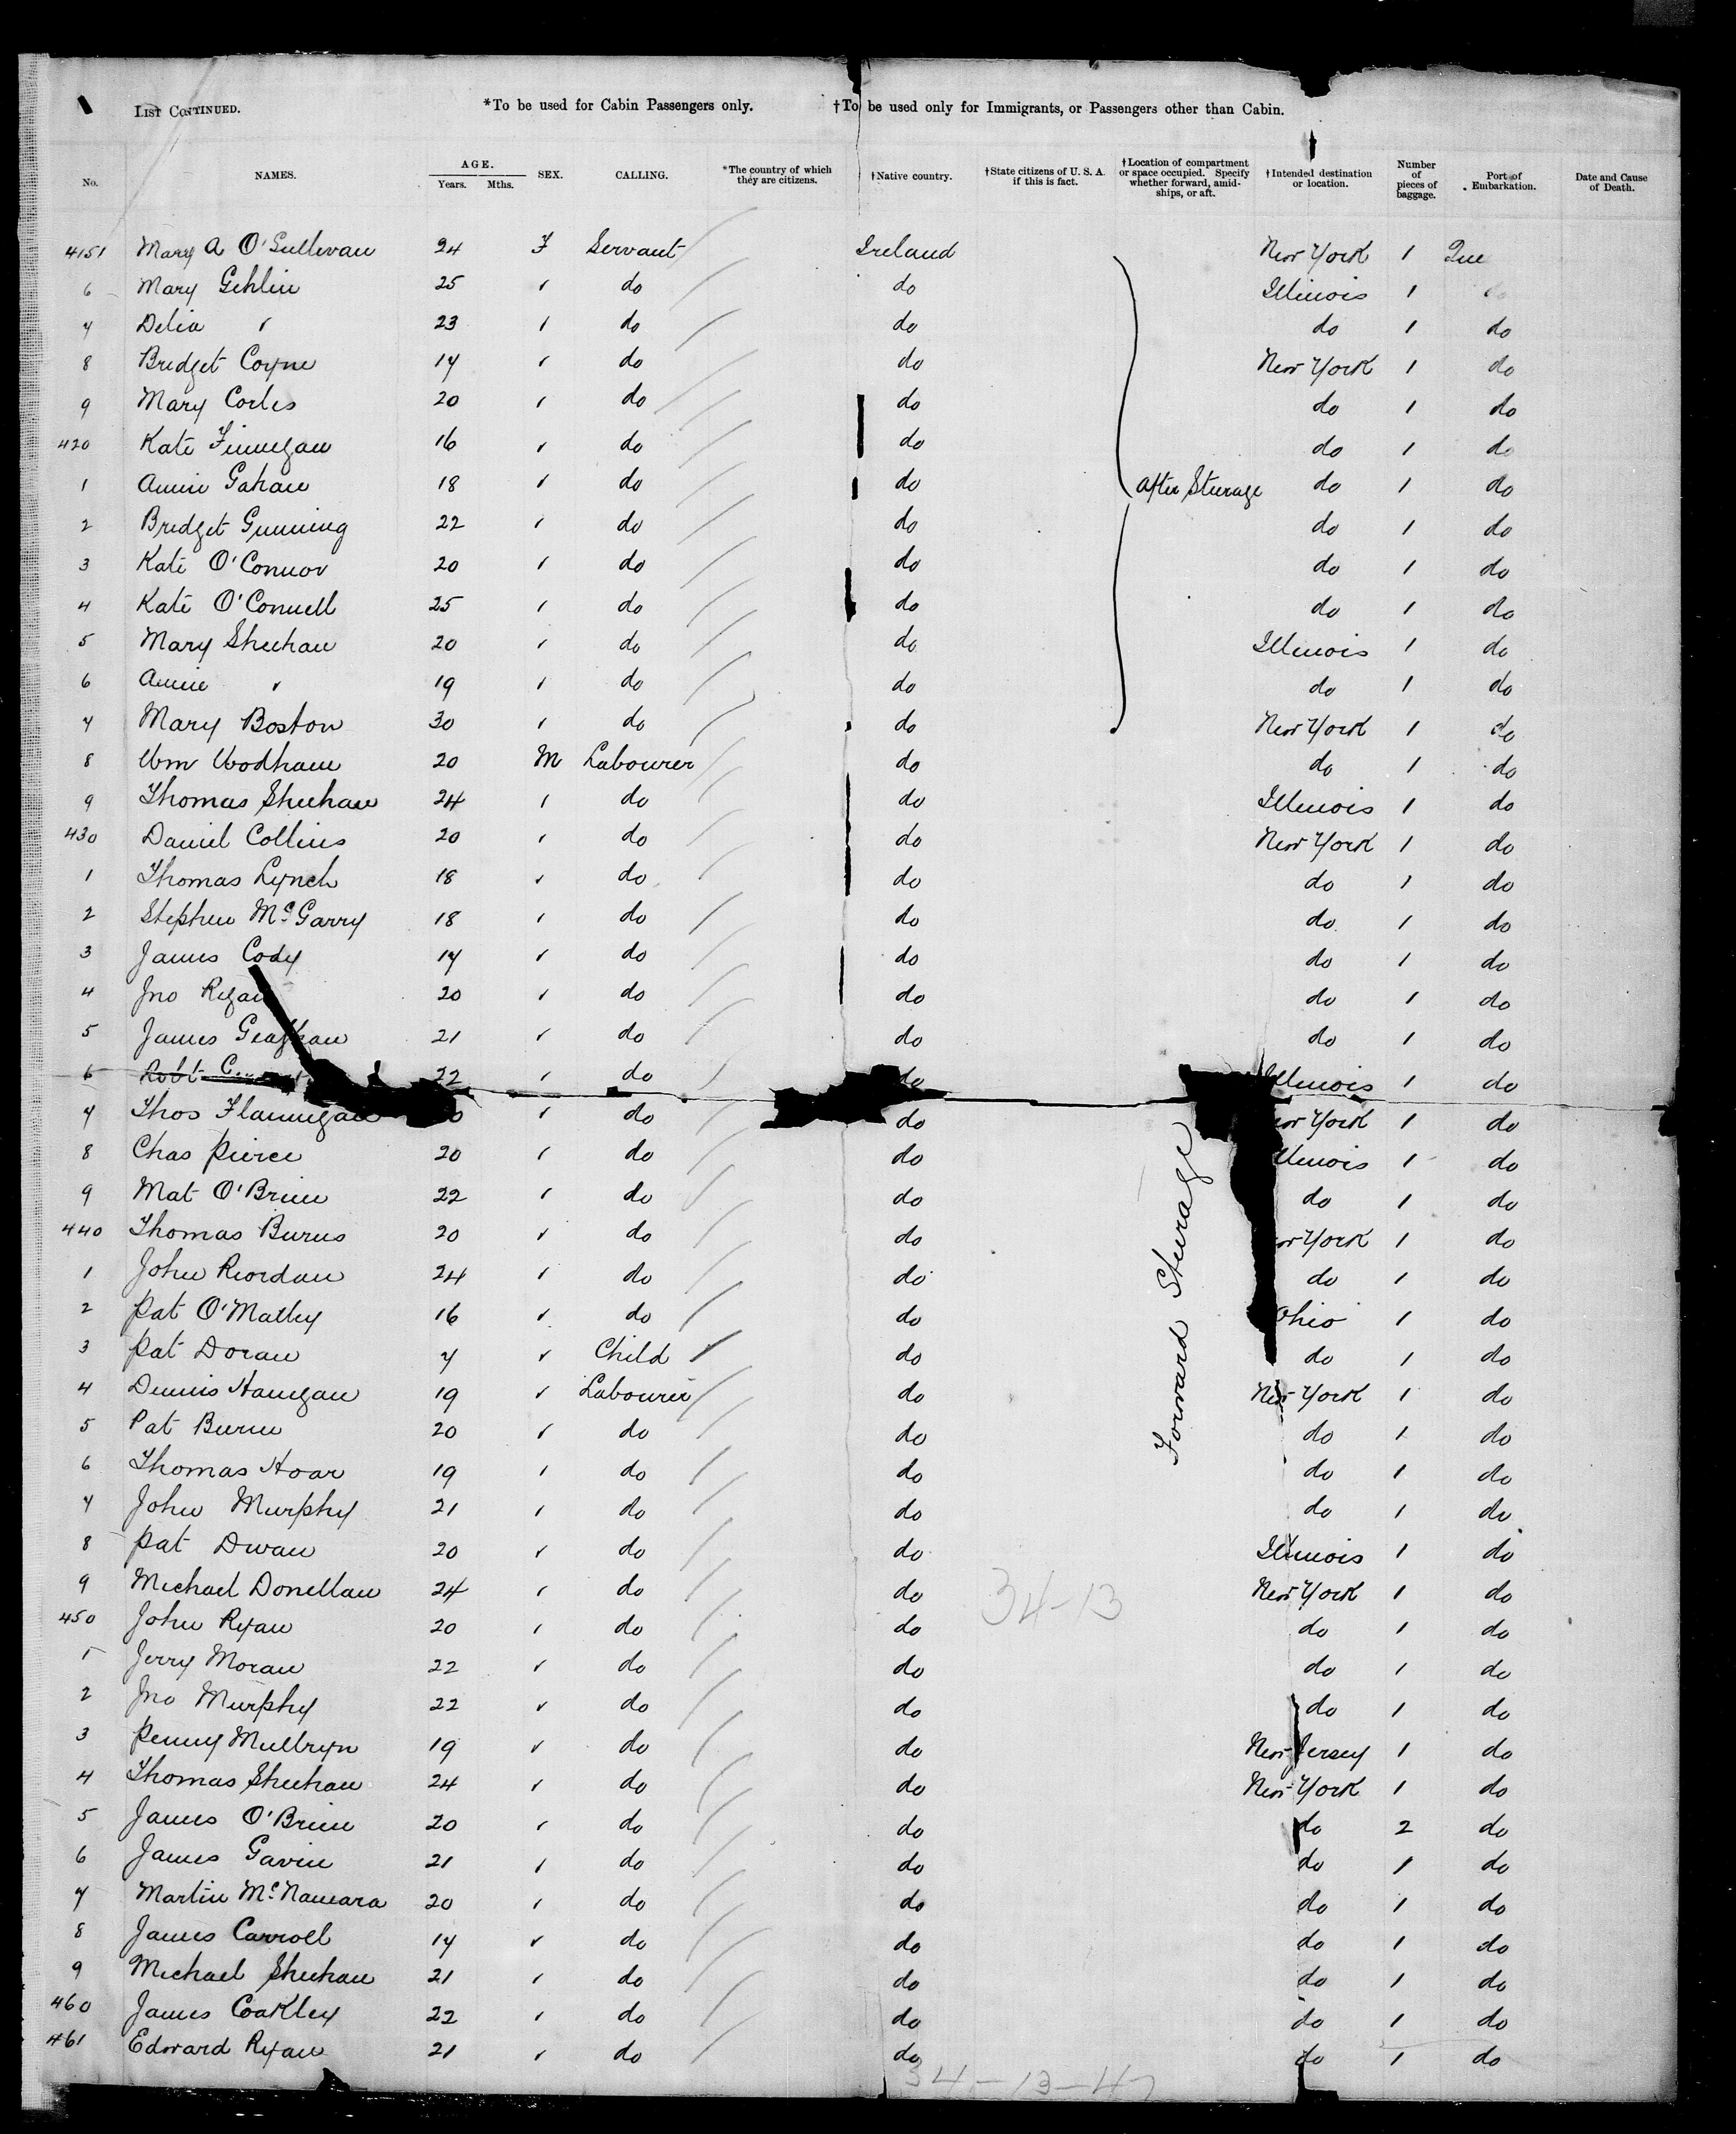 LIST CONTINUED. *To be used for Cabin Passengers only. †To be used only for Immigrants, or Passengers other than Cabin.
No. NAMES. AGE. Years. Mths. SEX. CALLING. *The country of which they are citizens. †Native country. †State citizens of U. S. A. if this is fact. †Location of compartment or space occupied. Specify whether forward, amidships, or aft. †Intended destination or location. Number of pieces of baggage. Port of Embarkation. Date and Cause of Death.
Mary A O'Sullivan 24 F Servant Ireland New York 1 Que
6 Mary Gehlin 25 " do do Illinois 1 do
7 Delia " 23 " do do do 1 do
8 Bridget Coyne 17 " do do New York 1 do
9 Mary Corlis 20 " do do do 1 do
420 Kate Finnegan 16 " do do do 1 do
1 Annie Gahan 18 " do do After Steerage do 1 do
2 Bridget Gunning 22 " do do do 1 do
3 Kate O'Connor 20 " do do do 1 do
4 Kate O'Connell 25 " do do do 1 do
5 Mary Sheehan 20 " do do Illinois 1 do
6 Annie " 19 " do do do 1 do
7 Mary Boston 30 " do do New York 1 do
8 Wm Woodham 20 M Labourer do do 1 do
9 Thomas Sheehan 24 " do do Illinois 1 do
430 Daniel Collins 20 " do do New York 1 do
1 Thomas Lynch 18 " do do do 1 do
2 Stephen McGarry 18 " do do do 1 do
3 James Cody 17 " do do do 1 do
4 Jno Regan 20 " do do do 1 do
5 James 21 " do do do 1 do
6 Robt 22 " do do Illinois 1 do
7 Thos Flannigan " do do York 1 do
8 Chas Pierce 20 " do do Illinois 1 do
9 Mat O'Brien 22 " do do do 1 do
440 Thomas Burns 20 " do do York 1 do
1 John Riordan 24 " do do do 1 do
2 Pat O'Malley 16 " do do Ohio 1 do
3 Pat Doran 7 " Child do do 1 do
4 Dennis Hanegan 19 " Labourer do Forward Steerage New York 1 do
5 Pat Burne 20 " do do do 1 do
6 Thomas Hoar 19 " do do do 1 do
7 John Murphy 21 " do do do 1 do
8 Pat Dwan 20 " do do Illinois 1 do
9 Michael Donellan 24 " do do 34-13 New York 1 do
450 John Ryan 20 " do do do 1 do
1 Jerry Moran 22 " do do do 1 do
2 Jno Murphy 22 " do do do 1 do
3 Penny Mulbryn 19 " do do New Jersey 1 do
4 Thomas Sheehan 24 " do do New York 1 do
5 James O'Brien 20 " do do do 2 do
6 James Gavin 21 " do do do 1 do
7 Martin McNamara 20 " do do do 1 do
8 James Carroll 17 " do do do 1 do
9 Michael Sheehan 21 " do do do 1 do
460 James Coakley 22 " do do do 1 do
461 Edward Ryan 21 " do do do 1 do
34-13-47